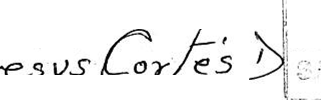 esus Cortés D